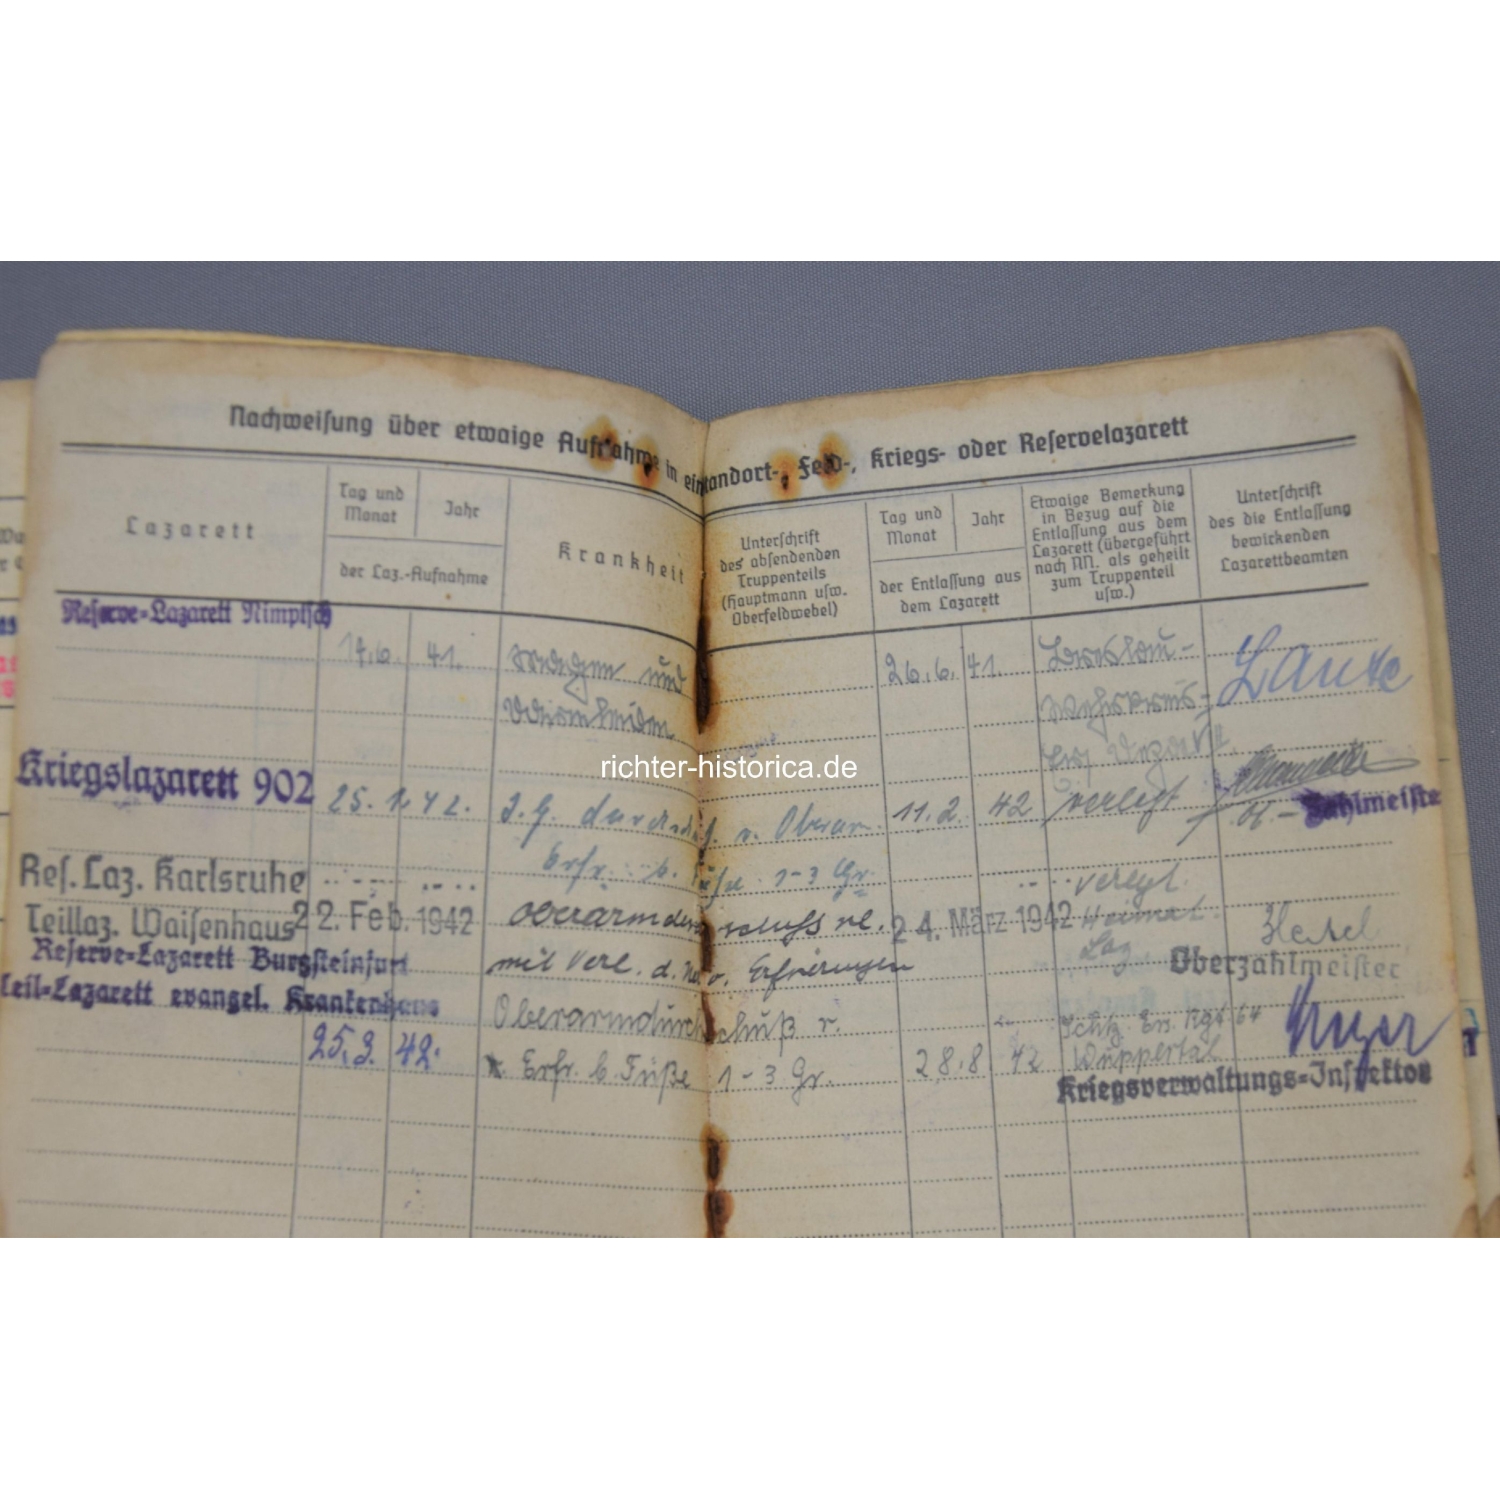 Nachweisung über etwaige Aufnahme in ein Standort-, Feld-, Kriegs- oder Reservelazarett
Lazarett
Tag und Monat
Jahr
der Laz.-Aufnahme
Krankheit
Unterschrift
des absendenden
Truppenteils
(Hauptmann usw.
Oberfeldwebel)
Tag und
Monat
Jahr
der Entlassung aus
dem Lazarett
Etwaige Bemerkung
in Bezug auf die
Entlassung aus dem
Lazarett (übergeführt
nach NN. als geheilt
zum Truppenteil
usw.)
Unterschrift
des die Entlassung
bewirkenden
Lazarettbeamten
Reserve-Lazarett Nimptsch
14.6. 41. Magen und 26.6. 41. Breslau-
richter-historica.de
Kriegslazarett 902
25. 1. 42. 11.2. 42 verlegt
Zahlmeiste
Erfr. b. Füße 1-3 Gr.
Res. Laz. Karlsruhe verlegt.
Teillaz. Waisenhaus 22. Feb. 1942 Oberarmdurchschuss re. 24. März 1942 Heimat.
Laz
mit Verl. d. Erfrierungen
Oberzahlmeister
Reserve-Lazarett Burgsteinfurt
Teil-Lazarett evangel. Krankenhaus
Oberarmdurchschuß r.
25.3. 42. Erfr. b. Füße 1-3 Gr. 28.8 42 Wuppertal
Kriegsverwaltungs-Inspektor